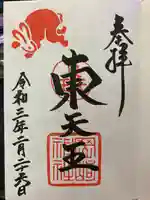 奉拝
東天王
令和三年二月二十六日